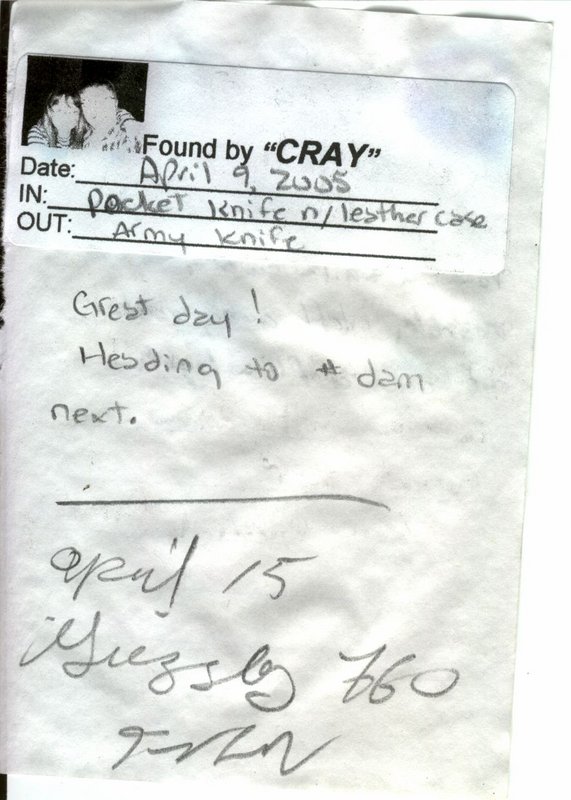 Found by "CRAY"
Date: April 9, 2005
IN: Pocket knife n/leather case
OUT: Army knife
Great day!
Heading to # dam
next.
April 15
760